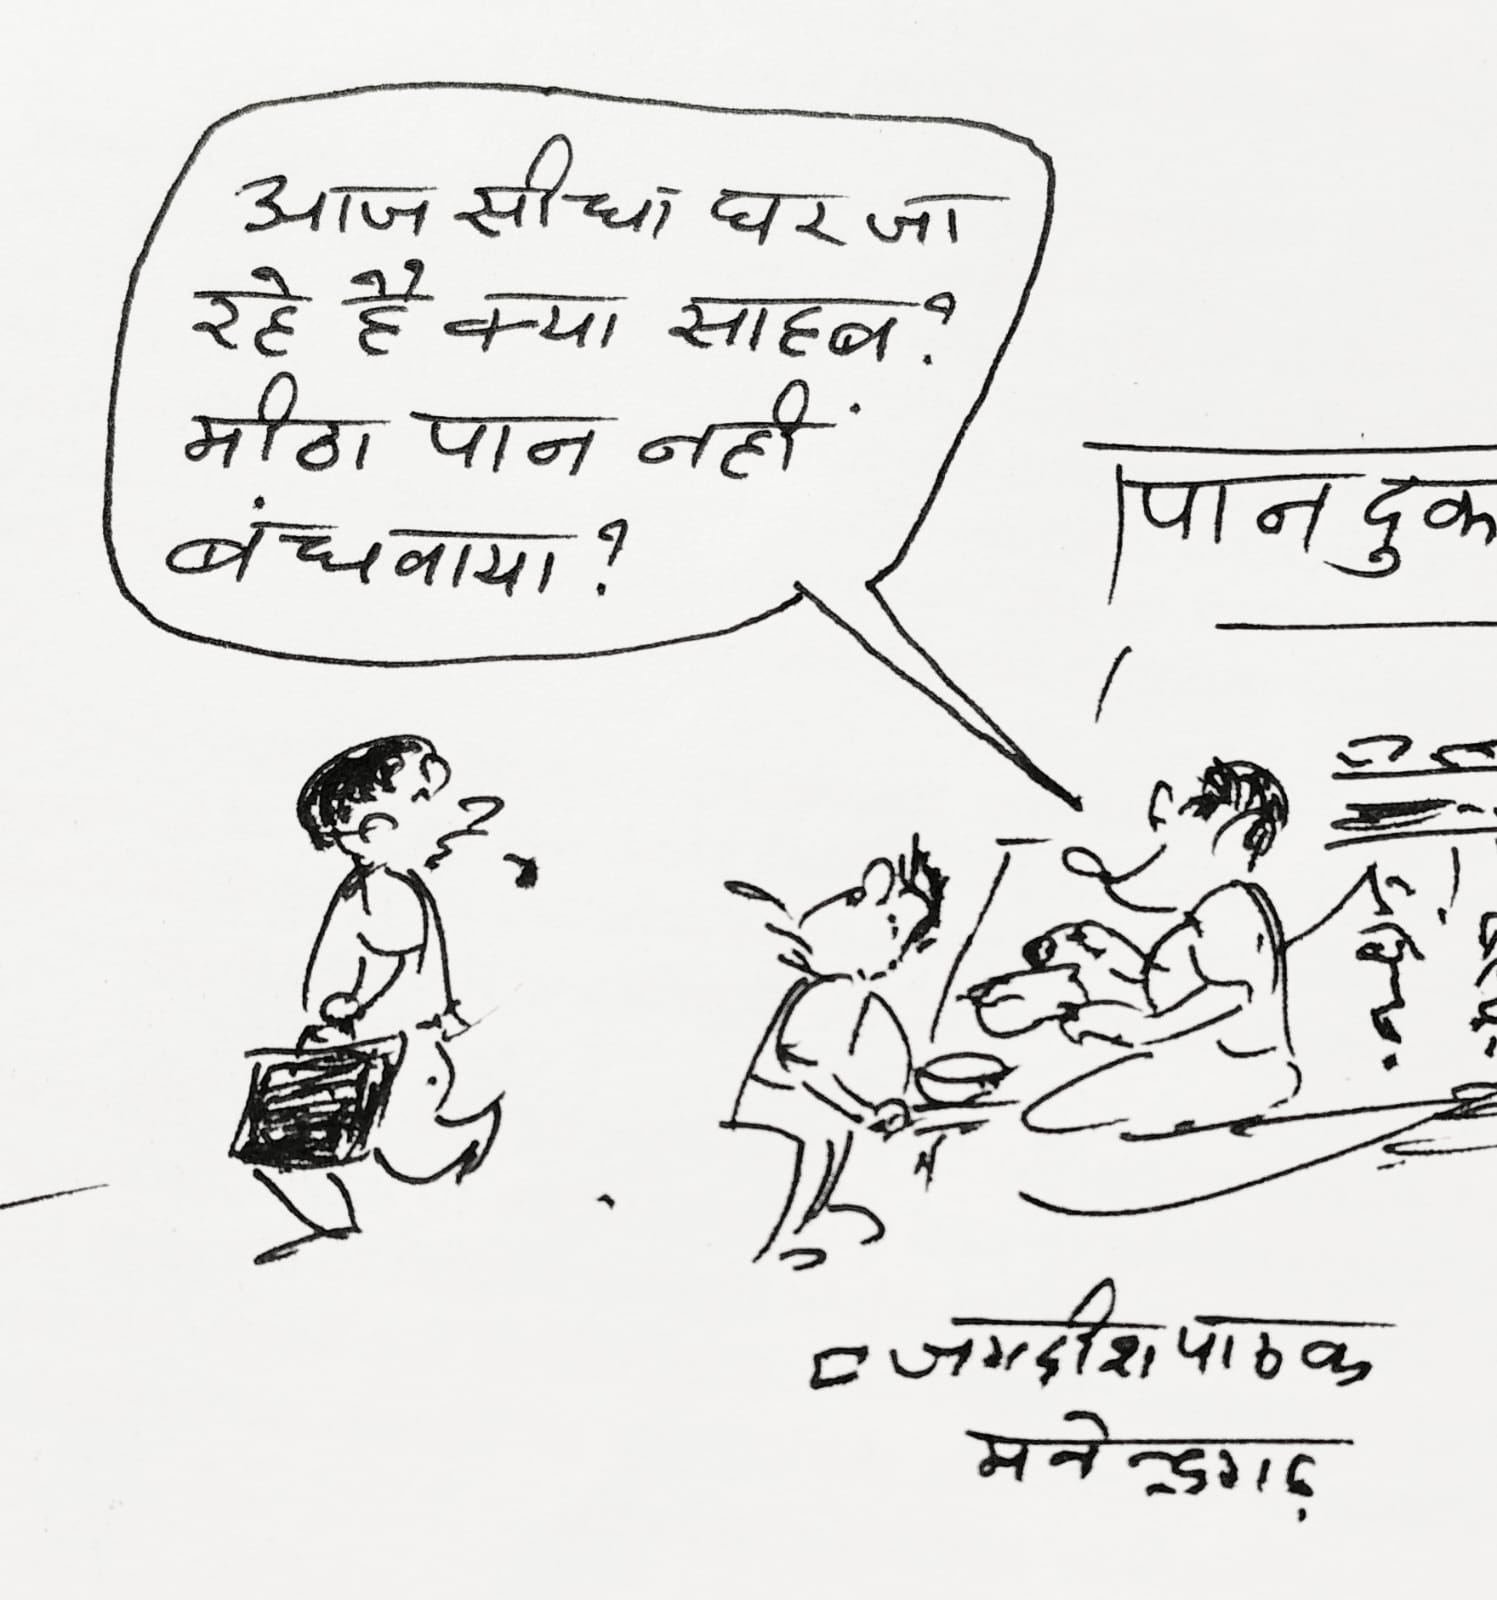 आज सीधा घर जा
रहे है क्या साहब?
मीठा पान नहीं
बंधवाया?
पान दुक
जगदीश पाठक
मनेन्द्रगढ़